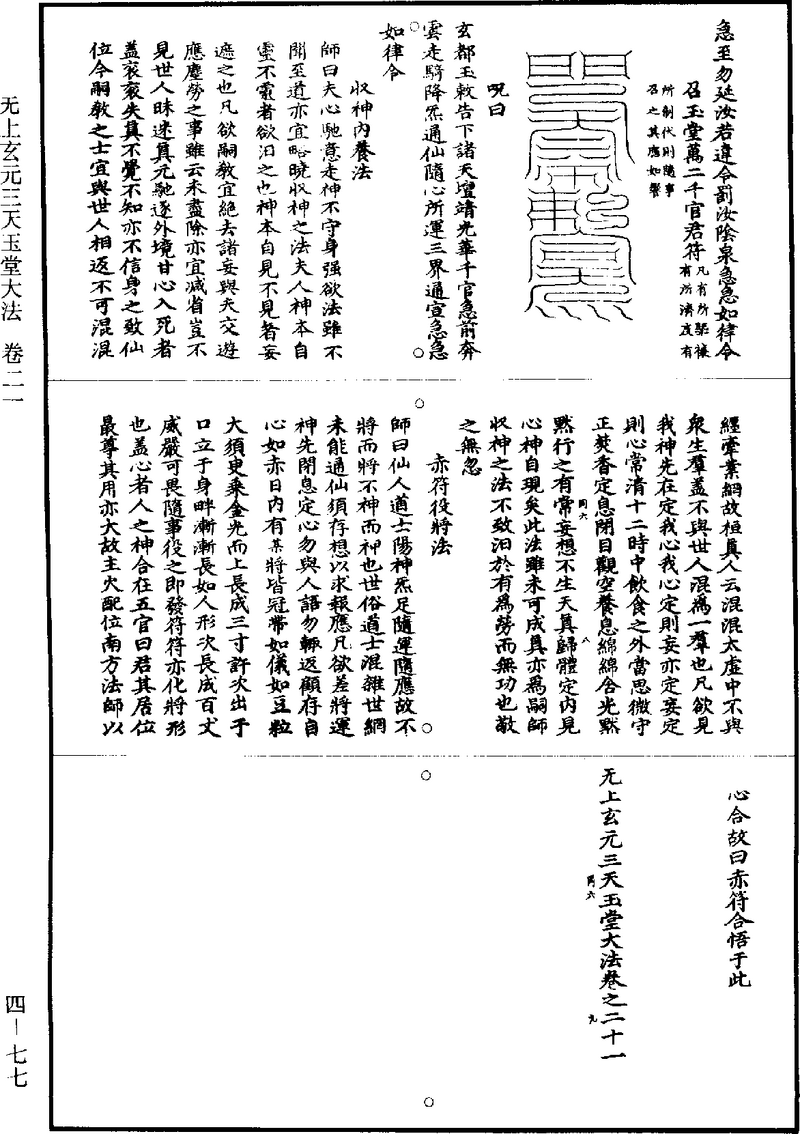 急至勿延汝若違令罰汝陰泉急急如律令
召玉堂萬二千官君符
凡有所禜禳
有所濟度有
所制伐則隨事
召之其應如響
呪曰
玄都玉敕告下諸天壇靖光華千官急前奔
雲走騎降炁通仙隨心所運三界通宣急急
如律令
收神内養法
師曰夫心馳意走神不守身强欲法雖不
聞至道亦宜略曉收神之法夫人神本自
靈不靈者欲汩之也神本自見不見者妄
遮之也凡欲嗣教宜絶去諸妄與夫交遊
應塵勞之事雖云未盡除亦宜減省豈不
見世人昧迷真元馳逐外境甘心入死者
蓋衮衮失真不覺不知亦不信身之致仙
位今嗣教之士宜與世人相返不可混混
經牽業網故桓真人云混混太虚中不與
衆生羣蓋不與世人混爲一羣也凡欲見
我神先在定我心我心定則妄亦定妄定
則心常清十二時中飲食之外當思微守
正焚香定息閉目觀空養息綿綿含光默
默行之有常妄想不生天真歸體定内見
同六
八
心神自現矣此法雖未可成真亦爲嗣師
收神之法不致汩於有爲勞而無功也敬
之無忽
赤符役將法
師曰仙人道士陽神炁足隨運隨應故不
將而將不神而神也世俗道士混雜世網
未能通仙須存想以求報應凡欲差將運
神先閉息定心勿與人語勿輒返顧存自
心如赤日内有某將皆冠帶如儀如豆粒
大須臾乘金光而上長成三寸許次出于
口立于身畔漸漸長如人形次長成百丈
威嚴可畏隨事役之即發符符亦化將形
也蓋心者人之神合在五官曰君其居位
最尊其用亦大故主火配位南方法師以
心合故曰赤符合悟于此
无上玄元三天玉堂大法卷之二十一
同六
九
无上玄元三天玉堂大法 卷二一
四—七七